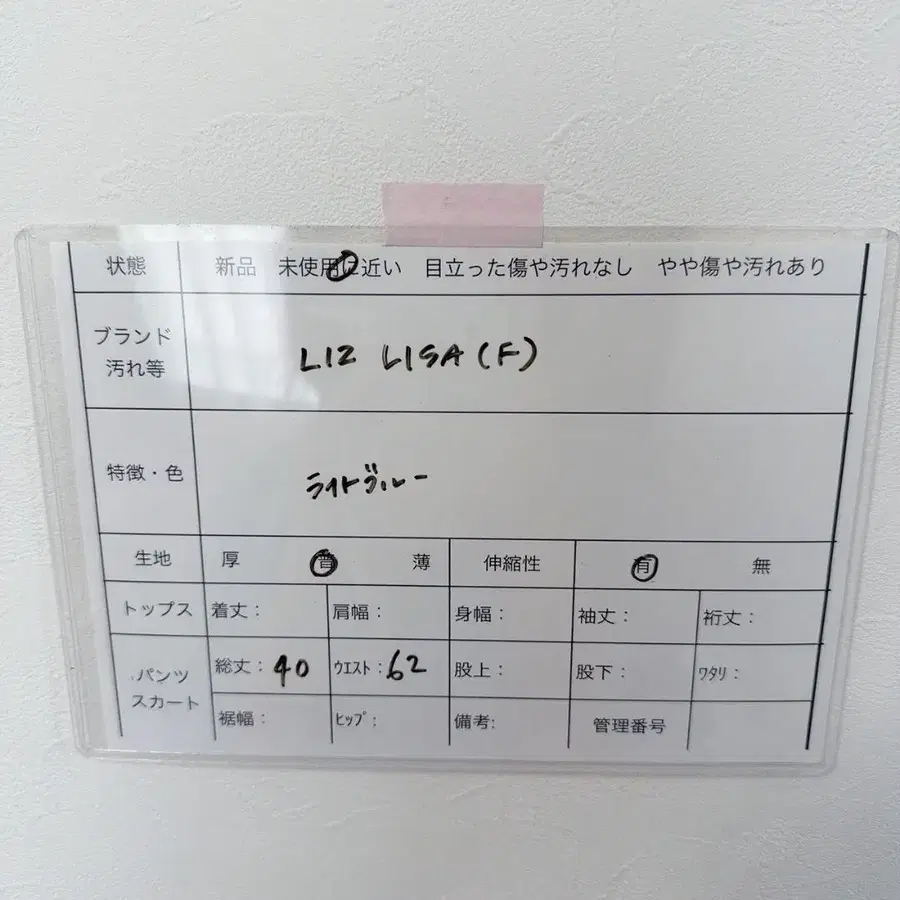 状態 新品 未使用に近い 目立った傷や汚れなし やや傷や汚れあり
ブランド
汚れ等
LIZ LISA (F)
特徴・色 ライトブルー
生地 厚 普 薄 伸縮性 有 無
トップス 着丈: 肩幅: 身幅: 袖丈: 裄丈:
パンツ
スカート
総丈: 40 ウエスト: 62 股上: 股下: ワタリ:
裾幅: ヒップ: 備考: 管理番号